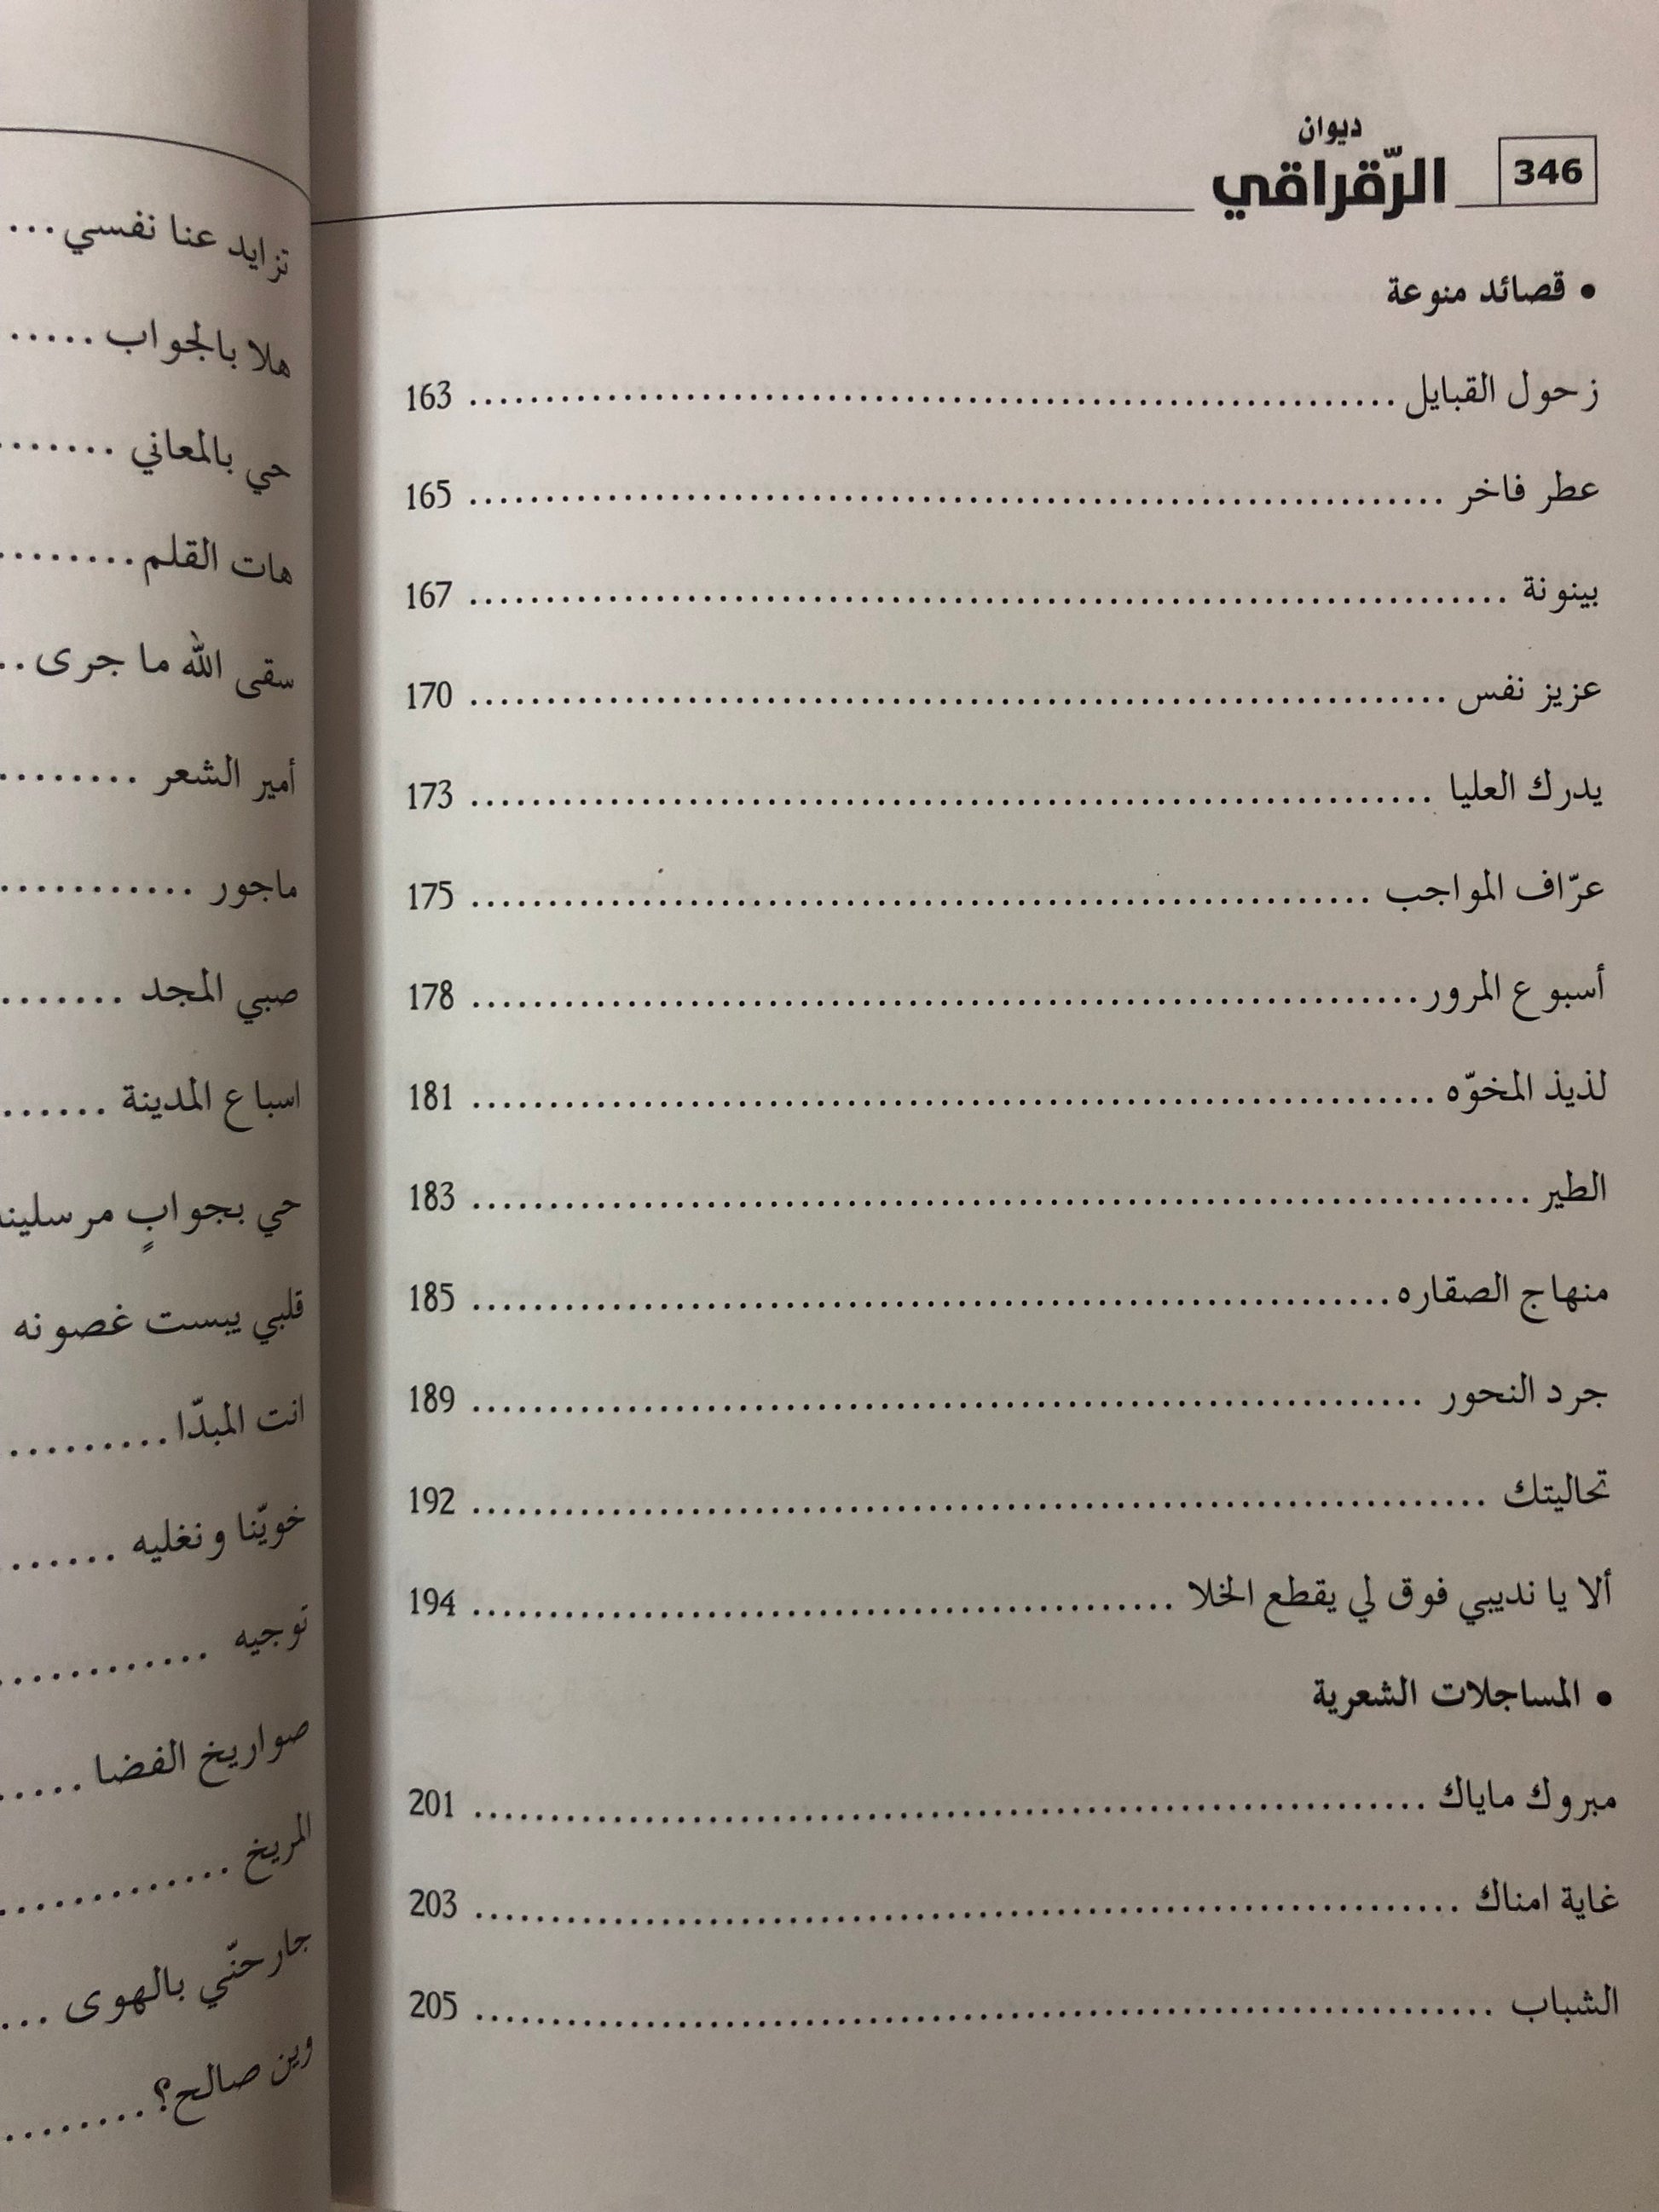 346
ديوان
الرّقراقي
• قصائد منوعة
زحول القبايل ........................................ 163
عطر فاخر ........................................ 165
بينونة ........................................ 167
عزيز نفس ........................................ 170
يدرك العليا ........................................ 173
عرّاف المواجب ........................................ 175
أسبوع المرور ........................................ 178
لذيذ المخوّه ........................................ 181
الطير ........................................ 183
منهاج الصقاره ........................................ 185
جرد النحور ........................................ 189
تحاليتك ........................................ 192
ألا يا نديبي فوق لي يقطع الخلا ........................................ 194
• المساجلات الشعرية
مبروك ماياك ........................................ 201
غاية امناك ........................................ 203
الشباب ........................................ 205
تزايد عنا نفسي ...
هلا بالجواب .....
حي بالمعاني .......
هات القلم ........
سقى الله ما جرى ..
أمير الشعر ........
ماجور ...........
صبي المجد .......
اسباع المدينة ......
حي بجوابٍ
قلبي يبست غصونه
انت المبدّا .........
خويّنا ونغليه ......
توجيه ............
صواريخ الفضا .....
المريخ .............
جارحنّي بالهوى ...
وين صالح؟ ........